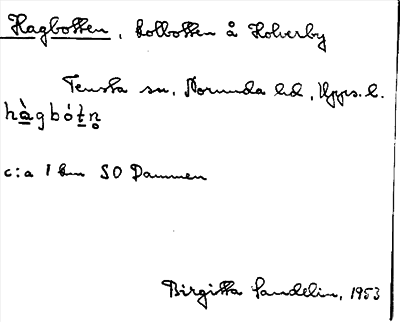 Hagbotten, kolbotten å Holverby
Tensta sn, Norunda hd, Upps. l.
hàgbót̠n̥
c:a 1 km SO Dammen
Birgitta Sandelin, 1953